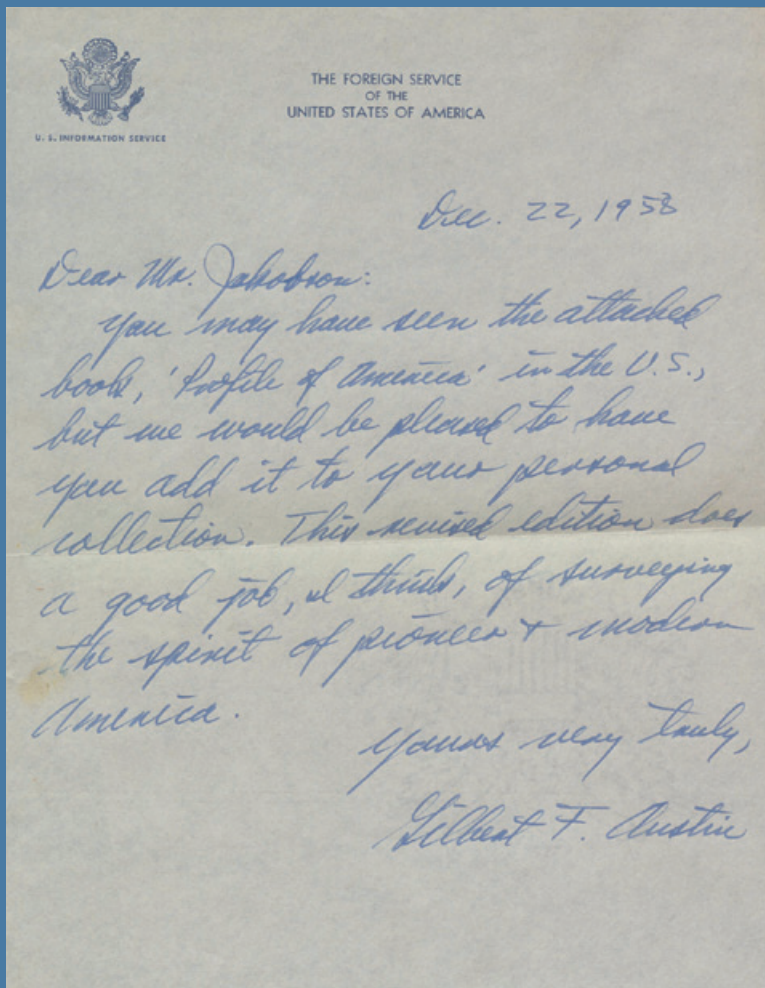 THE FOREIGN SERVICE
OF THE
UNITED STATES OF AMERICA
U. S. INFORMATION SERVICE
Dec. 22, 1958
Dear Mr. Jakobson:
You may have seen the attached
book, 'Profile of America' in the U.S.,
but we would be pleased to have
you add it to your personal
collection. This revised edition does
a good job, I think, of surveying
the spirit of pioneer + modern
America.
Yours very truly,
Gilbert F. Austin